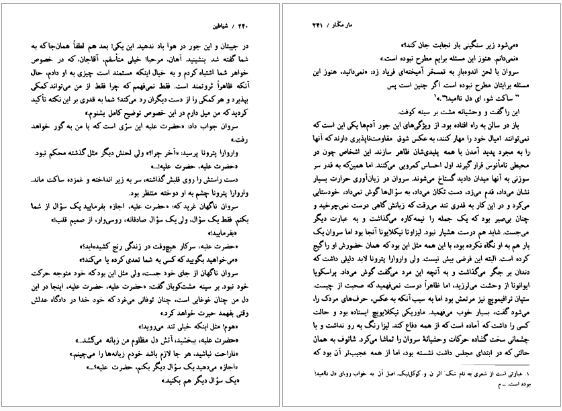 ۲۴۰ / شیاطین
در جیبتان و این جور در هوا باد ندهید. این یکی! بعد هم لطفاً همان‌جا که به
شما گفته شد بنشینید. آهان، مرحبا! خیلی متأسفم، آقاجان، که در خصوص
خواهر شما اشتباه کردم و به خیال اینکه مستمند است چیزی به او دادم، حال
آنکه ظاهراً ثروتمند است. فقط نمی‌فهمم که چرا فقط از من می‌تواند کمکی
بپذیرد و هر کمکی را از دست دیگران رد می‌کند؟ شما به قدری بر این نکته تأکید
کردید که میل دارم در این خصوص توضیح کامل بشنوم.»
سروان جواب داد: «حضرت علیه این سرّی است که با من به گور خواهد
رفت.»
واروارا پترونا پرسید: «آخر چرا؟» ولی لحنش دیگر مثل گذشته محکم نبود.
«حضرت علیه، حضرت علیه!...»
دست راستش را روی قلبش گذاشته، سر به زیر انداخته و غمزده ساکت ماند.
واروارا پترونا چشم به او دوخته منتظر بود.
سروان ناگهان غرید که: «حضرت علیه، اجازه بفرمایید یک سؤال از شما
بکنم. فقط یک سؤال، ولی یک سؤال صادقانه، روسی‌وار، از صمیم قلب!»
«بفرمایید!»
«حضرت علیه، سرکار هیچ‌وقت در زندگی رنج کشیده‌اید؟»
«می‌خواهید بگویید که کسی به شما تعدی کرده یا می‌کند؟»
سروان ناگهان از جای خود جست، ولی مثل این بود که خود متوجه حرکت
خود نبود. بر سینه مشت‌کوبان گفت: «حضرت علیه، حضرت علیه، اینجا در این
دل من چنان غوغایی است، چنان توفانی می‌غود که خود خدا در دادگاه عدلش
وقتی بفهمد حیرت خواهد کرد.»
«هوم! مثل اینکه خیلی تند می‌روید!»
«حضرت علیه، ببخشید، آتش دل مظلوم من زبانه می‌کشد...»
«ناراحت نباشید، هر جا لازم باشد خودم زبانه‌ها را می‌چینم.»
«اجازه می‌دهید یک سؤال دیگر بکنم، حضرت علیه؟...»
«یک سؤال دیگر هم بکنید.»
مار مکار / ۲۴۱
«می‌شود زیر سنگینی بار نجابت جان کند؟»
«نمی‌دانم. هنوز این مسئله برایم مطرح نبوده است.»
سروان با لحن اندوه‌بار به تمسخر آمیخته‌ای فریاد زد: «نمی‌دانید، هنوز این
مسئله برایتان مطرح نبوده است. اگر چنین است پس
" ساکت شو، ای دل ناامید!"»۱
این را گفت و وحشیانه مشت بر سینه کوفت.
باز در سالن به راه افتاده بود. از ویژگی‌های این جور آدم‌ها یکی این است که
نمی‌توانند امیال خود را مهار کنند، به عکس شوق مقاومت‌ناپذیری دارند که آنها
را به مجرد پدید آمدن با همه پلیدی‌شان ظاهر سازند. این اشخاص چون در
محیطی نامأنوس قرار گیرند اول احساس کمرویی می‌کنند. اما همین‌که به قدر سر
سوزنی به آنها میدان دادید گستاخ می‌شوند. سروان در زبان‌آوری حرارت بسیار
نشان می‌داد، قدم می‌زد، دست تکان می‌داد، به سؤال‌ها گوش نمی‌داد، خودستایی
می‌کرد و در این کار به قدری تند می‌رفت که زبانش گاهی درست نمی‌چرخید و
چنان بی‌صبر بود که یک جمله را نیمه‌کاره می‌گذاشت و به عبارت دیگر
می‌جست. شاید هم درست هشیار نبود. لیزاوتا نیکلایونا آنجا بود اما سروان یک
بار هم به او نگاه نکرده بود، با این همه مثل این بود که همان حضورش او را گیج
کرده است. البته این فرضی بیش نیست. ولی واروارا پترونا لابد دلیلی داشت که
دندان بر جگر می‌گذاشت و به آنچه این مرد می‌گفت گوش می‌داد. پراسکویا
ایوانونا از وحشت می‌لرزید، اما ظاهراً درست نمی‌فهمید که صحبت از چیست.
ستپان ترافیموویچ نیز مرتعش بود اما به سبب آنکه به عکس، حرف‌های مردک را،
می‌شود گفت، بسیار خوب می‌فهمید. ماوریکی نیکلایویچ ایستاده بود و حالت
کسی را داشت که آماده است که از همه دفاع کند. لیزا رنگ به رو نداشت و با
چشمانی سخت گشاده حرکات وحشیانهٔ سروان را تماشا می‌کرد. شاتوف به همان
حالتی که در ابتدای مجلس داشت نشسته بود، اما از همه عجیب‌تر آن بود که
۱. عبارتی است از شعری به نام شک، اثر ن. و. کوکل‌نیک. اصل آن به خواب رو، ای دل ناامید!
بوده است. ــ م